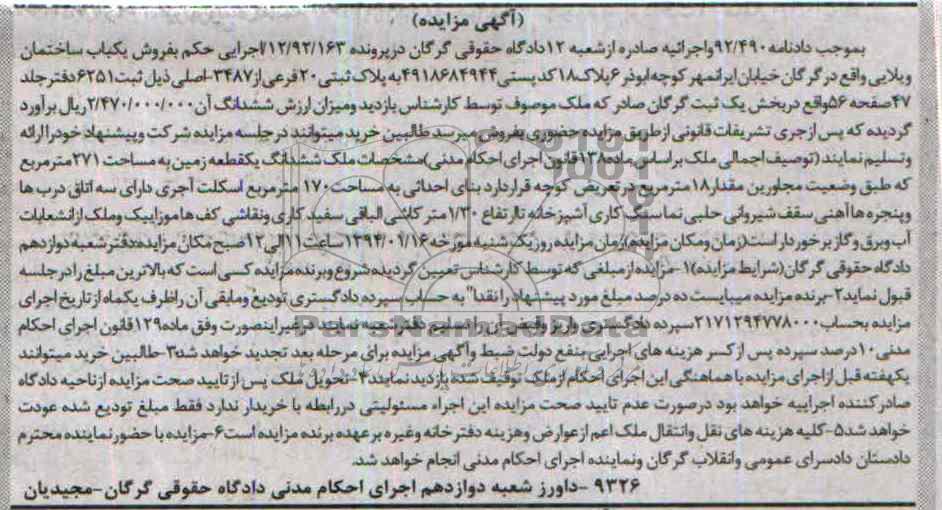 (آگهی مزایده)
بموجب دادنامه ۹۲/۴۹۰ واجرائیه صادره ازشعبه ۱۲دادگاه حقوقی گرگان درپرونده ۱۲/۹۲/۱۶۳/اجرایی حکم بفروش یکباب ساختمان
ویلایی واقع در گرگان خیابان ایرانمهر کوچه ابوذر ۶پلاک۱۸کدپستی۴۹۱۸۶۸۴۹۴۴به پلاک ثبتی۲۰فرعی از۳۴۸۷-اصلی ذیل ثبت۶۲۵۱دفتر جلد
۴۷صفحه ۵۶واقع دربخش یک ثبت گرگان صادر که ملک موصوف توسط کارشناس بازدید ومیزان ارزش ششدانگ آن۲/۴۷۰/۰۰۰/۰۰۰ریال برآورد
گردیده که پس ازجری تشریفات قانونی ازطریق مزایده حضوری بفروش میرسد طالبین خرید میتوانند درجلسه مزایده شرکت وپیشنهاد خودراارائه
وتسلیم نمایند(توصیف اجمالی ملک براساس ماده۱۳۸قانون اجرای احکام مدنی)مشخصات ملک ششدانگ یکقطعه زمین به مساحت ۲۷۱مترمربع
که طبق وضعیت مجاورین مقدار۱۸مترمربع درتعریض کوچه قراردارد بنای احداثی به مساحت۱۷۰ مترمربع اسکلت آجری دارای سه اتاق درب ها
وپنجره ها آهنی سقف شیروانی حلبی نما سنگ کاری آشپزخانه تا ارتفاع ۱/۳۰ متر کاشی الباقی سفید کاری ونقاشی کف ها موزاییک وملک ازانشعابات
آب وبرق وگاز برخوردار است(زمان ومکان مزایده)زمان مزایده روزیک شنبه مورخه ۱۳۹۴/۰۱/۱۶ساعت۱۱الی۱۲صبح مکان مزایده:دفترشعبه دوازدهم
دادگاه حقوقی گرگان(شرایط مزایده)۱-مزایده ازمبلغی که توسط کارشناس تعیین گردیده شروع وبرنده مزایده کسی است که بالاترین مبلغ رادرجلسه
قبول نماید۲-برنده مزایده میبایست ده درصد مبلغ مورد پیشنهاد رانقدا" به حساب سپرده دادگستری تودیع ومابقی آن راظرف یکماه ازتاریخ اجرای
مزایده بحساب۲۱۷۱۲۹۴۷۷۸۰۰۰سپرده دادگستری واریز وفیش آن راتسلیم دفترشعبه نماید درغیراینصورت وفق ماده۱۲۹قانون اجرای احکام
مدنی۱۰درصد سپرده پس ازکسر هزینه های اجرایی بنفع دولت ضبط وآگهی مزایده برای مرحله بعد تجدید خواهد شد۳-طالبین خرید میتوانند
یکهفته قبل ازاجرای مزایده باهماهنگی این اجرای احکام ازملک توقیف شده بازدید نمایند۴-تحویل ملک پس ازتایید صحت مزایده ازناحیه دادگاه
صادرکننده اجراییه خواهد بود درصورت عدم تایید صحت مزایده این اجراء مسئولیتی دررابطه با خریدار ندارد فقط مبلغ تودیع شده عودت
خواهد شد۵-کلیه هزینه های نقل وانتقال ملک اعم ازعوارض وهزینه دفترخانه وغیره برعهده برنده مزایده است۶-مزایده باحضورنماینده محترم
دادستان دادسرای عمومی وانقلاب گرگان ونماینده اجرای احکام مدنی انجام خواهد شد.
۹۳۲۶ -داورز شعبه دوازدهم اجرای احکام مدنی دادگاه حقوقی گرگان-مجیدیان
ParsNamadData